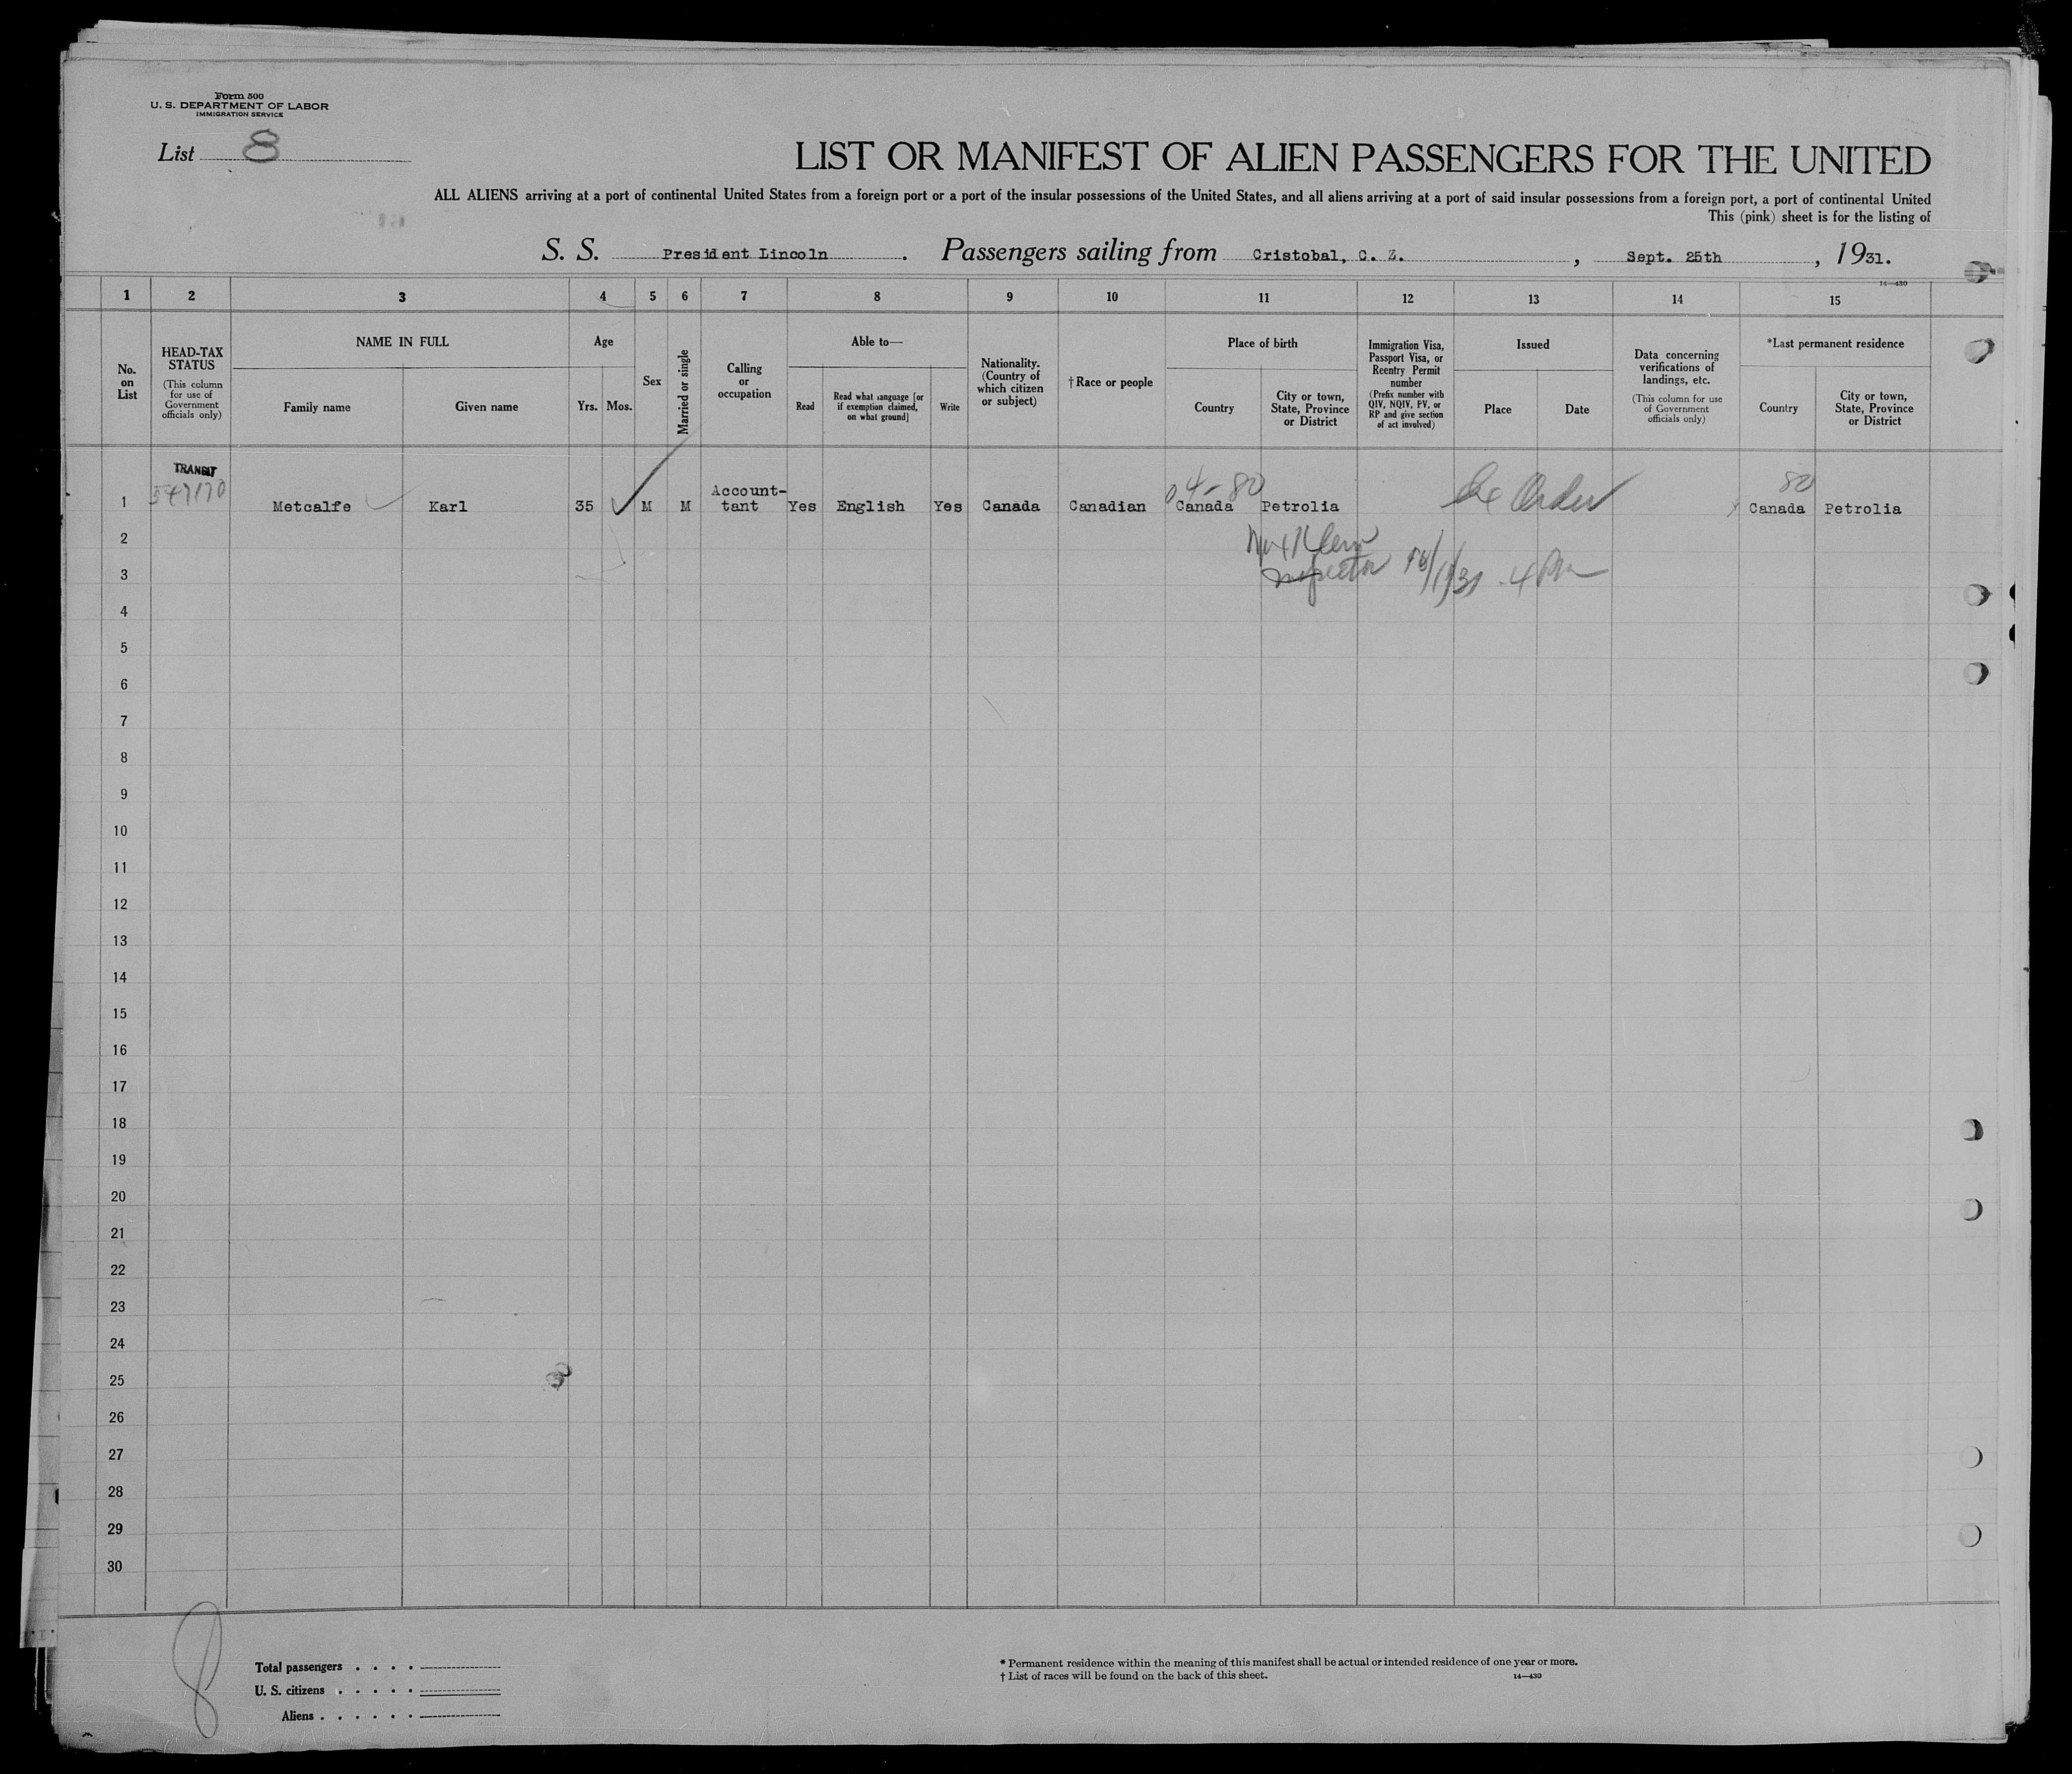 Form 500
U. S. DEPARTMENT OF LABOR
IMMIGRATION SERVICE
List 8
LIST OR MANIFEST OF ALIEN PASSENGERS FOR THE UNITED
ALL ALIENS arriving at a port of continental United States from a foreign port or a port of the insular possessions of the United States, and all aliens arriving at a port of said insular possessions from a foreign port, a port of continental United
This (pink) sheet is for the listing of
S. S. President Lincoln. Passengers sailing from Cristobal, C. Z., Sept. 25th, 1931.
14—430
1 2 3 4 5 6 7 8 9 10 11 12 13 14 15
No. on List
HEAD-TAX STATUS
(This column for use of Government officials only)
NAME IN FULL
Family name
Given name
Age
Yrs. Mos.
Sex
Married or single
Calling or occupation
Able to—
Read
Read what language [or if exemption claimed, on what ground]
Write
Nationality. (Country of which citizen or subject)
†Race or people
Place of birth
Country
City or town, State, Province or District
Immigration Visa, Passport Visa, or Reentry Permit number
(Prefix number with QIV, NQIV, PV, or RP and give section of act involved)
Issued
Place
Date
Data concerning verifications of landings, etc.
(This column for use of Government officials only)
*Last permanent residence
Country
City or town, State, Province or District
TRANSIT
547170
04-80
Ex Order
80
1 Metcalfe Karl 35 M M Account-tant Yes English Yes Canada Canadian Canada Petrolia Canada Petrolia
2
Inspector 4 Pm
3
4
5
6
7
8
9
10
11
12
13
14
15
16
17
18
19
20
21
22
23
24
25
26
27
28
29
30
8
Total passengers
U. S. citizens
Aliens
* Permanent residence within the meaning of this manifest shall be actual or intended residence of one year or more.
† List of races will be found on the back of this sheet.
14—430